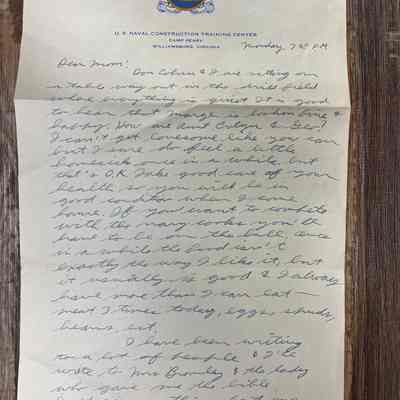 U. S. NAVAL CONSTRUCTION TRAINING CENTER
CAMP PEARY
WILLIAMSBURG, VIRGINIA
Monday 7 PM
Dear Mom:
Don & I are sitting on
a table way out in the drill field
where everything is quiet. It is good
to hear that Marge is &
baby. How are Aunt & Geo?
I can't get lonesome like you can
but I sure do feel a little
homesick once in a while but
that's O.K. Take good care of your
health so you will be in
good condition when I come
home. If you want to compete
with the navy cooks you'll
have to be on the ball, once
in a while the food isn't
exactly the way I like it, but
it usually is good & I always
have more than I can eat—
meat 3 times today, eggs, spuds,
beans, ect.
I have been writing
to a lot of people & I'll
write to Mrs & the lady
who gave me the bible